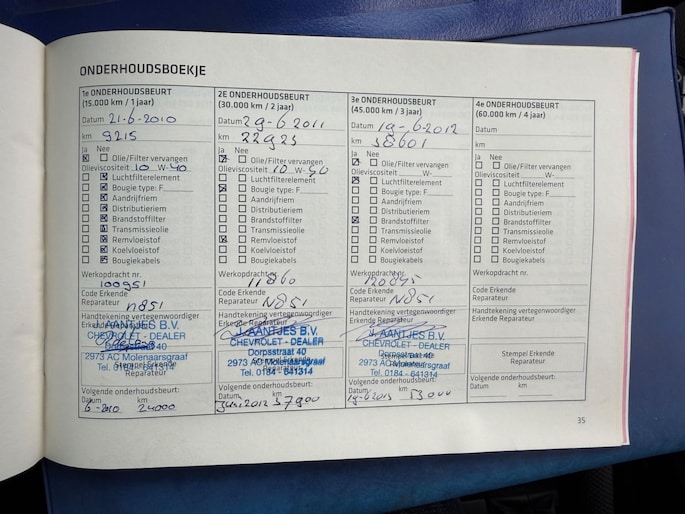 ONDERHOUDSBOEKJE
1e ONDERHOUDSBEURT
(15.000 km / 1 jaar)
Datum 21-6-2010
km
9215
Ja Nee
Olie/Filter vervangen
Olieviscositeit 10 W-40
Luchtfilterelement
Bougie type: F
Aandrijfriem
Distributieriem
Brandstoffilter
Transmissieolie
Remvloeistof
Koelvloeistof
Bougiekabels
Werkopdracht nr.
100951
Code Erkende
Reparateur
n851
Handtekening vertegenwoordiger
Erkende Reparateur
J. AANTJES B.V.
CHEVROLET - DEALER
Dorpsstraat 40
2973 AC Molenaarsgraaf
Stempel Erkende
Tel. 0184 - 641314
Reparateur
Volgende onderhoudsbeurt:
Datum km
6-2010 24000
2E ONDERHOUDSBEURT
(30.000 km / 2 jaar)
Datum 29-6 2011
km
22923
Ja Nee
Olie/Filter vervangen
Olieviscositeit 10 W-40
Luchtfilterelement
Bougie type: F
Aandrijfriem
Distributieriem
Brandstoffilter
Transmissieolie
Remvloeistof
Koelvloeistof
Bougiekabels
Werkopdracht nr.
11860
Code Erkende
Reparateur N851
Handtekening vertegenwoordiger
Erkende Reparateur
J. AANTJES B.V.
CHEVROLET - DEALER
Dorpsstraat 40
2973 AC Molenaarsgraaf
Tel. 0184 - 641314
Volgende onderhoudsbeurt:
Datum km
Juni 2012 37900
3e ONDERHOUDSBEURT
(45.000 km / 3 jaar)
Datum 19-6-2012
km 38601
Ja Nee
Olie/Filter vervangen
Olieviscositeit W-
Luchtfilterelement
Bougie type: F
Aandrijfriem
Distributieriem
Brandstoffilter
Transmissieolie
Remvloeistof
Koelvloeistof
Bougiekabels
Werkopdracht nr.
120845
Code Erkende
Reparateur N851
Handtekening vertegenwoordiger
Erkende Reparateur
J. AANTJES B.V.
CHEVROLET - DEALER
Dorpsstraat 40
2973 AC Molenaarsgraaf
Tel. 0184 - 641314
Volgende onderhoudsbeurt:
Datum km
19-6-2013 53000
4e ONDERHOUDSBEURT
(60.000 km / 4 jaar)
Datum
km
Ja Nee
Olie/Filter vervangen
Olieviscositeit W-
Luchtfilterelement
Bougie type: F
Aandrijfriem
Distributieriem
Brandstoffilter
Transmissieolie
Remvloeistof
Koelvloeistof
Bougiekabels
Werkopdracht nr.
Code Erkende
Reparateur
Handtekening vertegenwoordiger
Erkende Reparateur
Stempel Erkende
Reparateur
Volgende onderhoudsbeurt:
Datum km
35